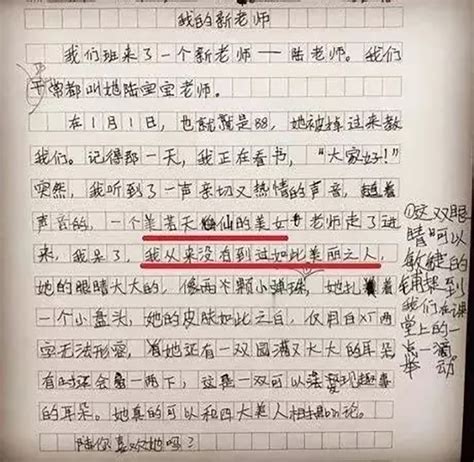 我的新老师
我们班来了一个新老师——陆老师。我们
平常都叫她陆宝宝老师。
在1月1日，也就就是88，她被掉过来教
我们。记得那一天，我正在看书，“大家好！”
突然，我听到了一声亲切又热情的声音，趁着
声音的，一个美若天仙的美女老师走了进
来，我呆了，我从来没有看到过如此美丽之人，
她的眼睛大大的，像两个颗小弹珠，她扎着
一个小盘头，她的皮肤如此之白，仅用白对两
字无法形容，她还有一双圆满又大大的耳朵
有时还会 一两下，这是一双可以 发现趣事
的耳朵。她真的可以和四大美人相提并论。
陪你喜欢她吗？
①这双眼
睛可以
敏捷的
捕捉到
我们在课
堂上的一
点一滴
举动。